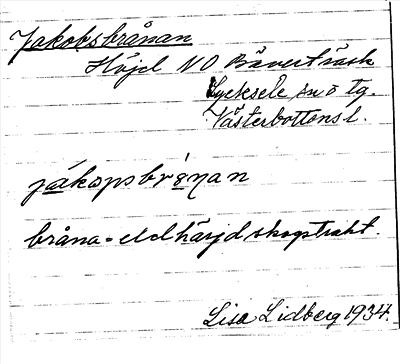 Jakobsbrånan
Höjd NO Bäverträsk
Lycksele sn o tg.
Västerbottens l.
jákopsbrȯnan
bråna = eldhärjd skogstrakt.
Lisa Lidberg 1934.